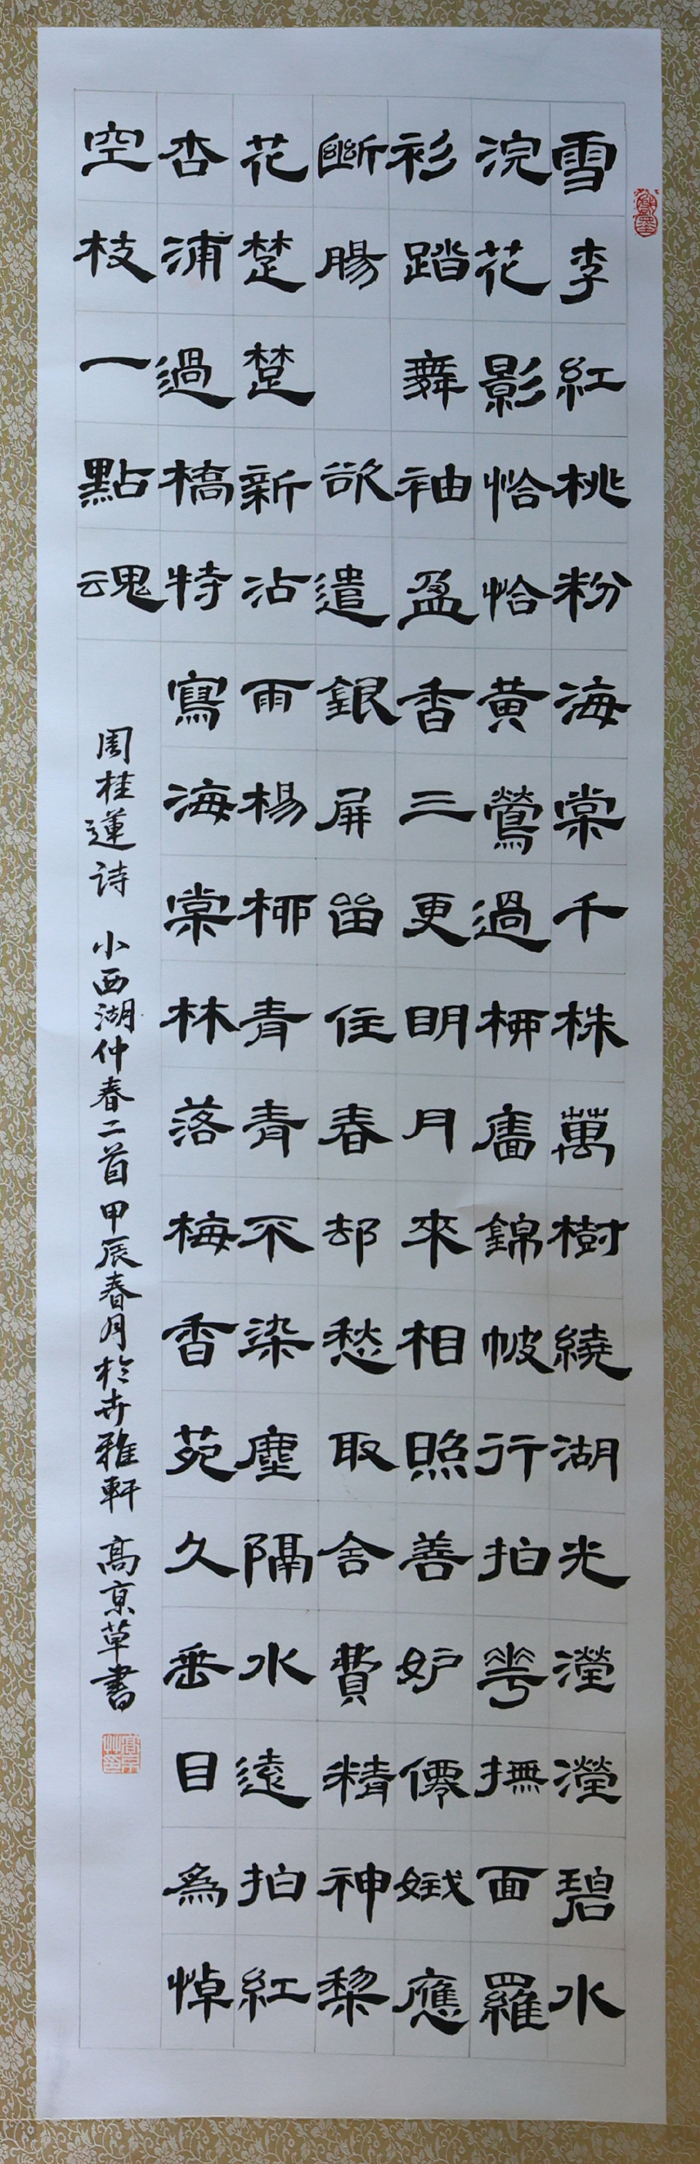 雪李紅桃粉海棠千株萬樹繞湖光瀅瀅碧水
浣花影恰恰黃鶯過柳廬錦帔行拍花撫面羅
衫踏舞袖盈香三更明月來相照善妒儒娥應
斷腸 欲遣銀屏留住春却愁取舍費精神棃
花楚楚新沾雨楊柳青青不染塵隔水遠拍紅
杏浦過橋特寫海棠林落梅香苑久垂目為悼
空枝一點魂
周桂蓮詩 小西湖仲春二首 甲辰春月於卉雅軒 高京草書